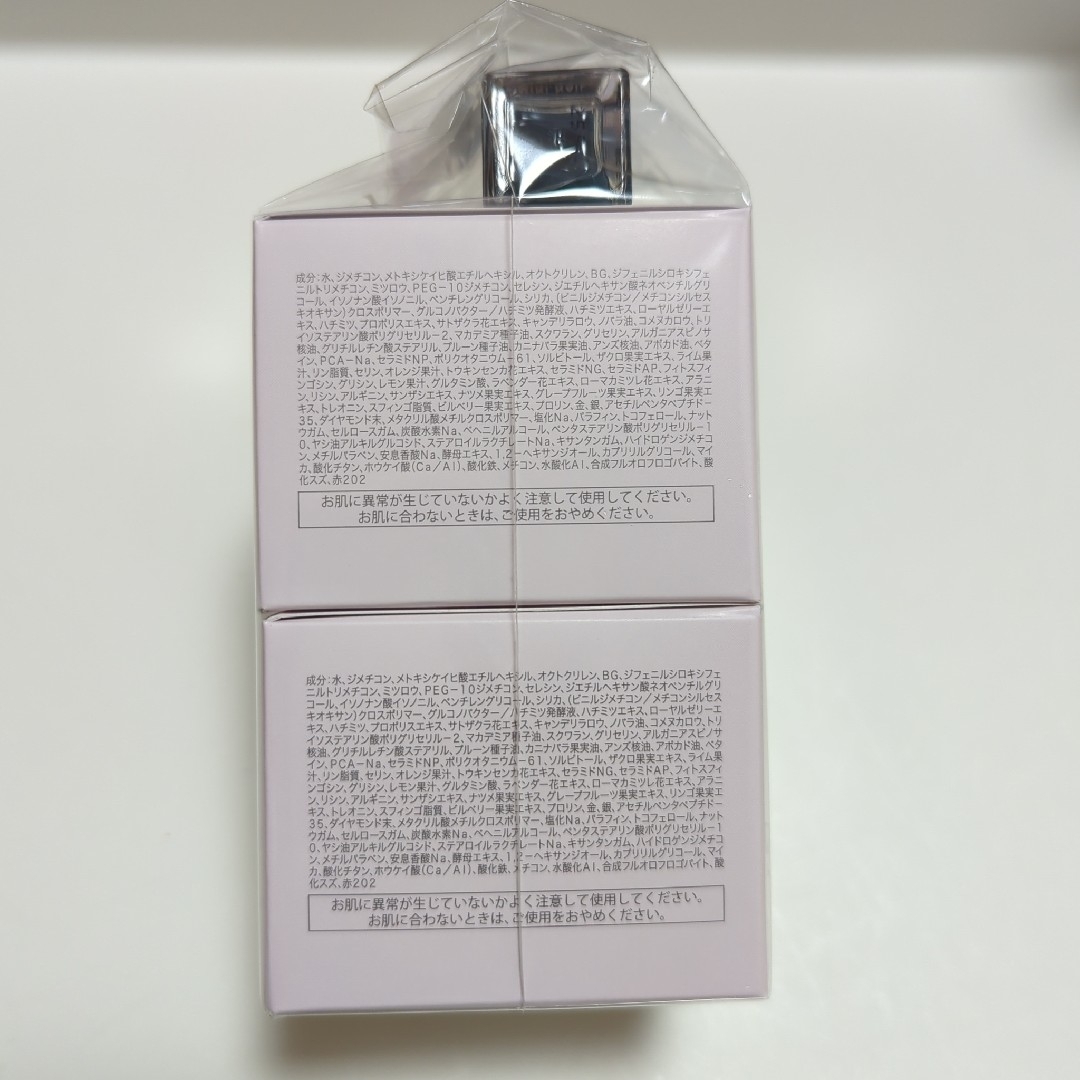 成分：水、ジメチコン、メトキシケイヒ酸エチルヘキシル、オクトクリレン、BG、ジフェニルシロキシフェ
ニルトリメチコン、ミツロウ、PEG－10ジメチコン、セレシン、ジエチルヘキサン酸ネオペンチルグリ
コール、イソノナン酸イソノニル、ペンチレングリコール、シリカ、（ビニルジメチコン／メチコンシルセス
キオキサン）クロスポリマー、グルコノバクター／ハチミツ発酵液、ハチミツエキス、ローヤルゼリーエ
キス、ハチミツ、プロポリスエキス、サトザクラ花エキス、キャンデリラロウ、ノバラ油、コメヌカロウ、トリ
イソステアリン酸ポリグリセリル－2、マカデミア種子油、スクワラン、グリセリン、アルガニアスピノサ
核油、グリチルレチン酸ステアリル、プルーン種子油、カニナバラ果実油、アンズ核油、アボカド油、ベタ
イン、PCA－Na、セラミドNP、ポリクオタニウム－61、ソルビトール、ザクロ果実エキス、ライム果
汁、リン脂質、セリン、オレンジ果汁、トウキンセンカ花エキス、セラミドNG、セラミドAP、フィトスフィ
ンゴシン、グリシン、レモン果汁、グルタミン酸、ラベンダー花エキス、ローマカミツレ花エキス、アラニ
ン、リシン、アルギニン、サンザシエキス、ナツメ果実エキス、グレープフルーツ果実エキス、リンゴ果実エ
キス、トレオニン、スフィンゴ脂質、ビルベリー果実エキス、プロリン、金、銀、アセチルペンタペプチド－
35、ダイヤモンド末、メタクリル酸メチルクロスポリマー、塩化Na、パラフィン、トコフェロール、ナット
ウガム、セルロースガム、炭酸水素Na、ベヘニルアルコール、ペンタステアリン酸ポリグリセリル－1
0、ヤシ油アルキルグルコシド、ステアロイルラクチレートNa、キサンタンガム、ハイドロゲンジメチコ
ン、メチルパラベン、安息香酸Na、酵母エキス、1，2－ヘキサンジオール、カプリリルグリコール、マイ
カ、酸化チタン、ホウケイ酸（Ca／Al）、酸化鉄、メチコン、水酸化Al、合成フルオロフロゴパイト、酸
化スズ、赤202
お肌に異常が生じていないかよく注意して使用してください。
お肌に合わないときは、ご使用をおやめください。
成分：水、ジメチコン、メトキシケイヒ酸エチルヘキシル、オクトクリレン、BG、ジフェニルシロキシフェ
ニルトリメチコン、ミツロウ、PEG－10ジメチコン、セレシン、ジエチルヘキサン酸ネオペンチルグリ
コール、イソノナン酸イソノニル、ペンチレングリコール、シリカ、（ビニルジメチコン／メチコンシルセス
キオキサン）クロスポリマー、グルコノバクター／ハチミツ発酵液、ハチミツエキス、ローヤルゼリーエ
キス、ハチミツ、プロポリスエキス、サトザクラ花エキス、キャンデリラロウ、ノバラ油、コメヌカロウ、トリ
イソステアリン酸ポリグリセリル－2、マカデミア種子油、スクワラン、グリセリン、アルガニアスピノサ
核油、グリチルレチン酸ステアリル、プルーン種子油、カニナバラ果実油、アンズ核油、アボカド油、ベタ
イン、PCA－Na、セラミドNP、ポリクオタニウム－61、ソルビトール、ザクロ果実エキス、ライム果
汁、リン脂質、セリン、オレンジ果汁、トウキンセンカ花エキス、セラミドNG、セラミドAP、フィトスフィ
ンゴシン、グリシン、レモン果汁、グルタミン酸、ラベンダー花エキス、ローマカミツレ花エキス、アラニ
ン、リシン、アルギニン、サンザシエキス、ナツメ果実エキス、グレープフルーツ果実エキス、リンゴ果実エ
キス、トレオニン、スフィンゴ脂質、ビルベリー果実エキス、プロリン、金、銀、アセチルペンタペプチド－
35、ダイヤモンド末、メタクリル酸メチルクロスポリマー、塩化Na、パラフィン、トコフェロール、ナット
ウガム、セルロースガム、炭酸水素Na、ベヘニルアルコール、ペンタステアリン酸ポリグリセリル－1
0、ヤシ油アルキルグルコシド、ステアロイルラクチレートNa、キサンタンガム、ハイドロゲンジメチコ
ン、メチルパラベン、安息香酸Na、酵母エキス、1，2－ヘキサンジオール、カプリリルグリコール、マイ
カ、酸化チタン、ホウケイ酸（Ca／Al）、酸化鉄、メチコン、水酸化Al、合成フルオロフロゴパイト、酸
化スズ、赤202
お肌に異常が生じていないかよく注意して使用してください。
お肌に合わないときは、ご使用をおやめください。